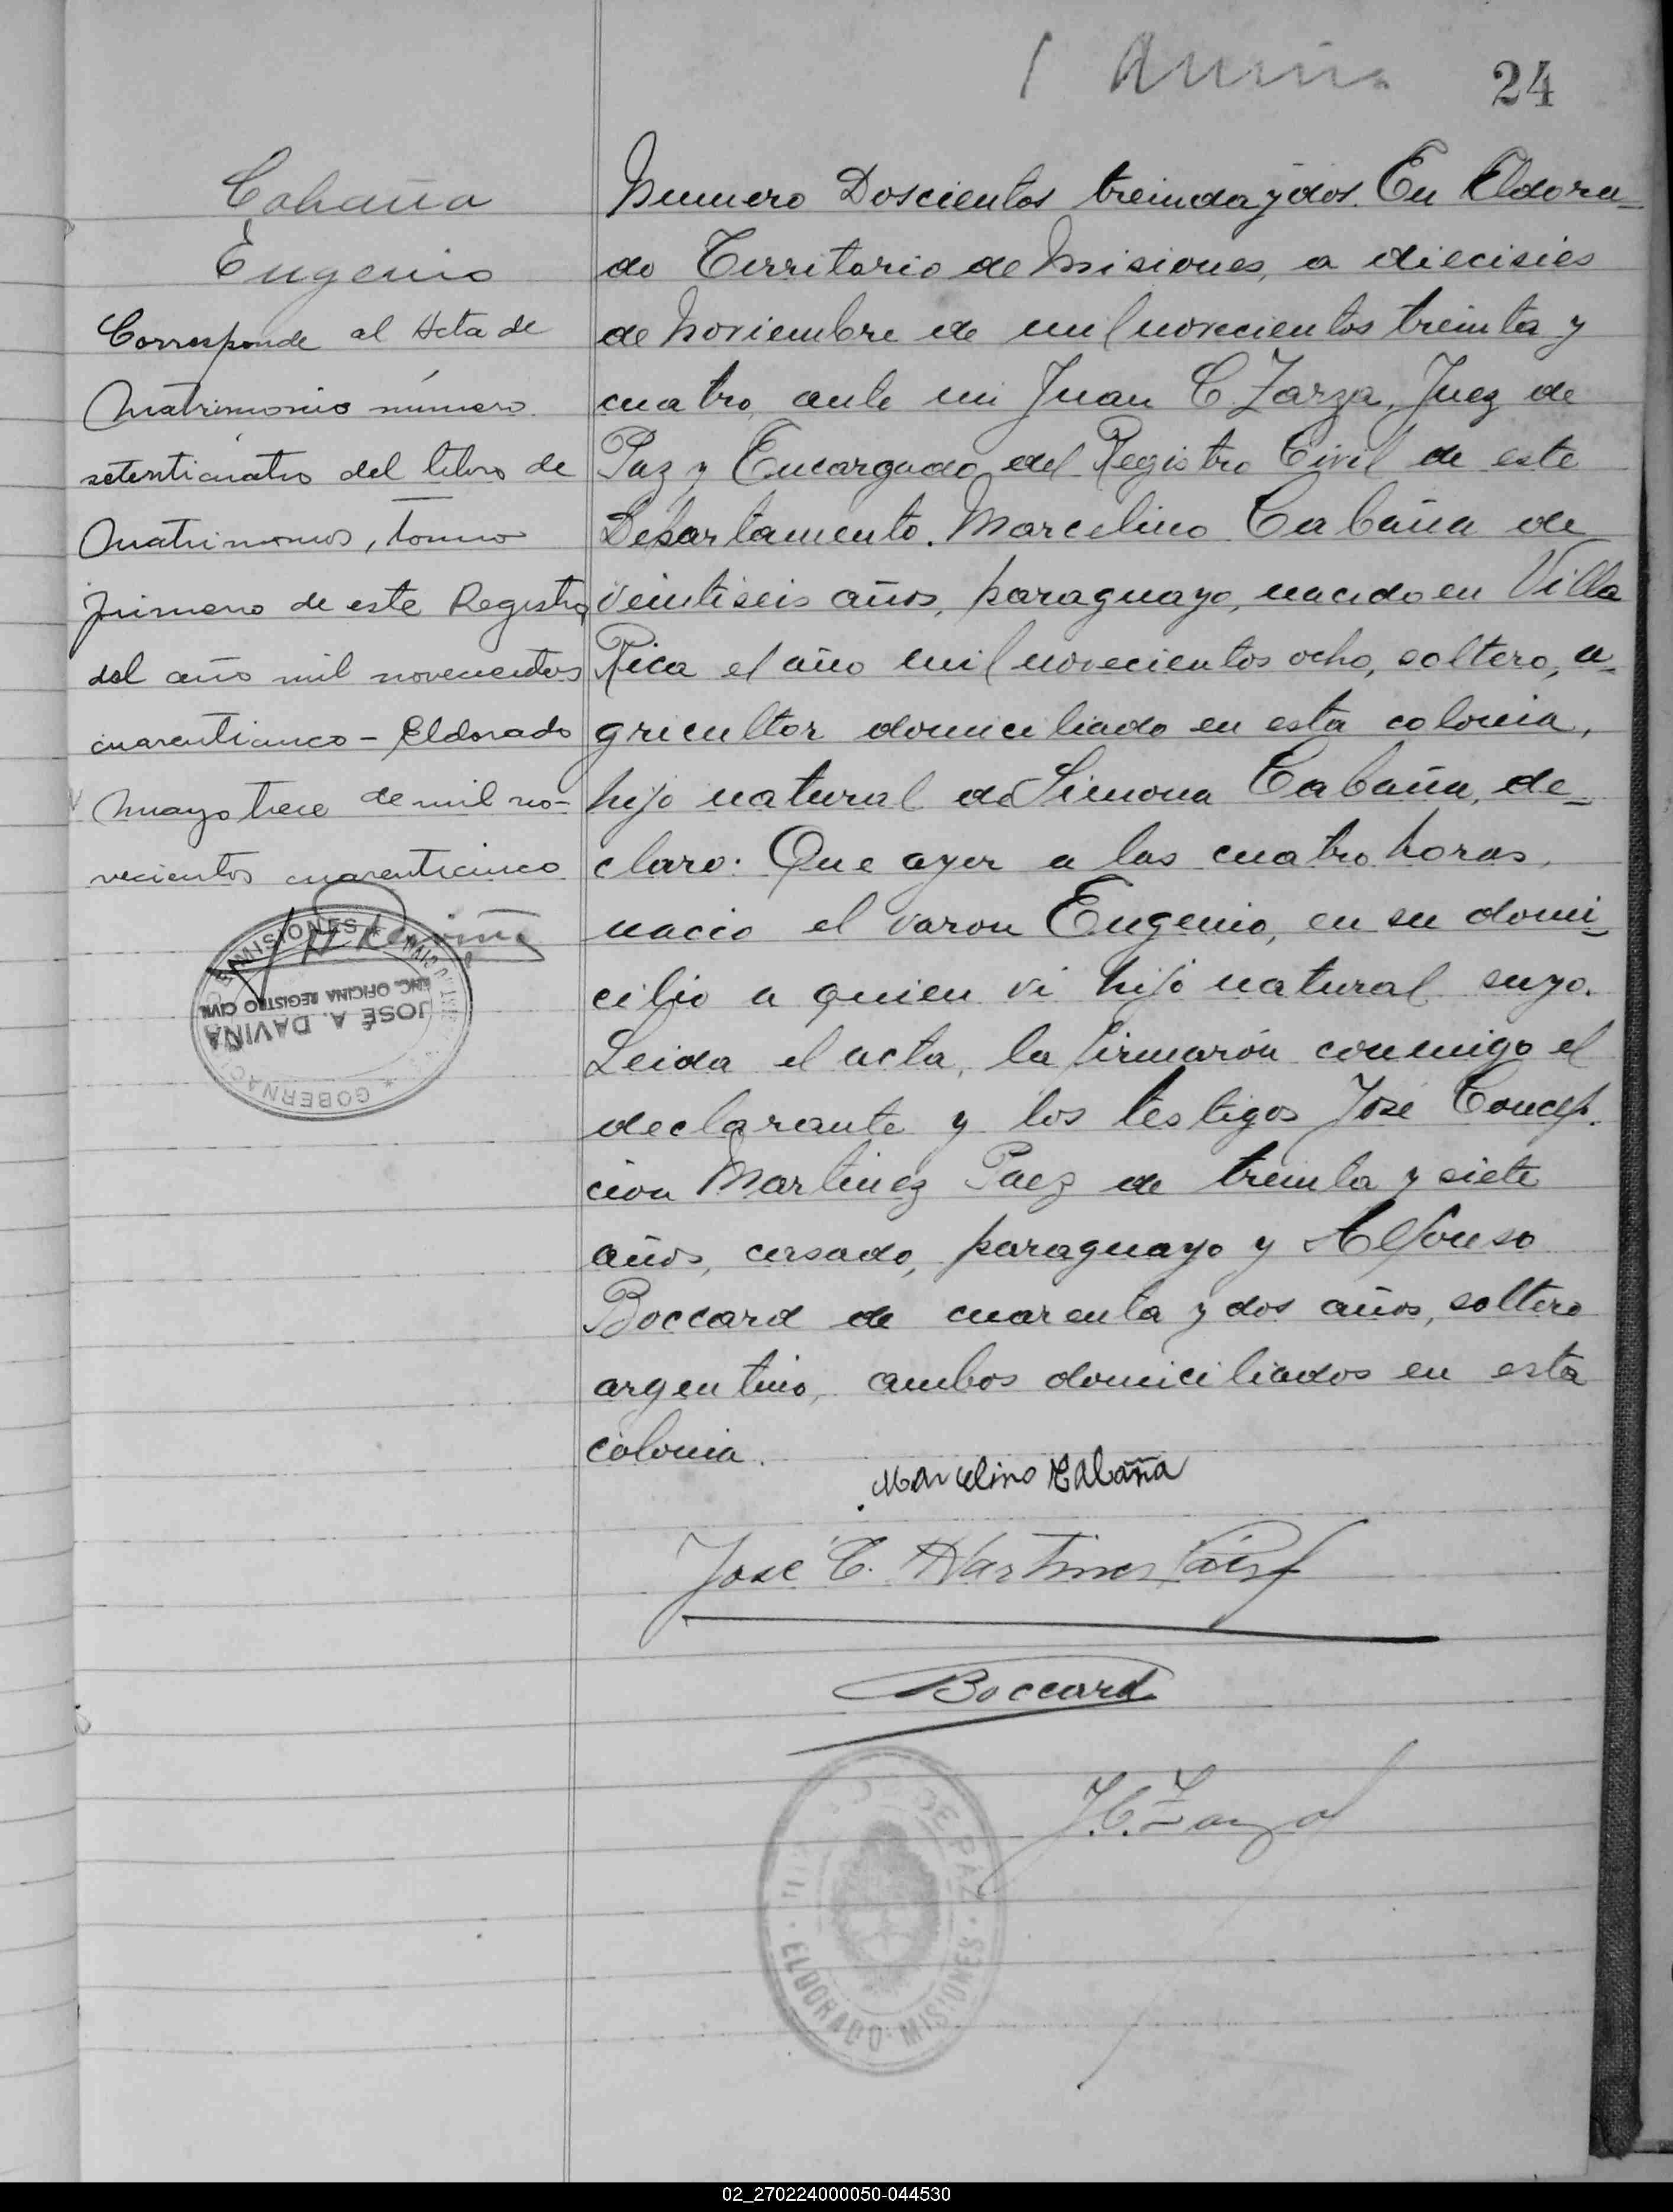 24
Cabaña
Eugenio
Corresponde al Acta de
Matrimonio número
setenticuatro del libro de
Matrimonios, tomo
primero de este Registro
del año mil novecientos
cuarenticinco - Eldorado
Mayo trece de mil no-
vecientos cuarenticinco
MISIONES
JOSÉ A. DAVIÑA
ENC. OFICINA REGISTRO CIVIL
Numero Doscientos treinda y dos. En Eldora=
do Territorio de Misiones, a diecisies
de Noviembre de mil novecientos treinta y
cuatro, ante mi Juan C. Zarza, Juez de
Paz y Encargado del Registro Civil de este
Departamento. Marcelino Cabaña de
veintiseis años, paraguayo, nacido en Villa
Rica el año mil novecientos ocho, soltero, a-
gricultor domiciliado en esta colonia,
hijo natural de Simona Cabaña, de=
claro: Que ayer a las cuatro horas,
nacio el varon Eugenio, en su domi=
cilio a quien vi hijo natural suyo.
Leida el acta, la firmarón conmigo el
declarante y los testigos José Concep.
cion Martinez Paez de treinta y siete
años, casado, paraguayo y Alfonso
Boccard de cuarenta y dos años, soltero
argentino, ambos domiciliados en esta
colonia.
Marcelino Cabaña
José C. Martinez Páez
Boccard
J. C. Zarza
DE PAZ
ELDORADO · MISIONES
02_270224000050-044530